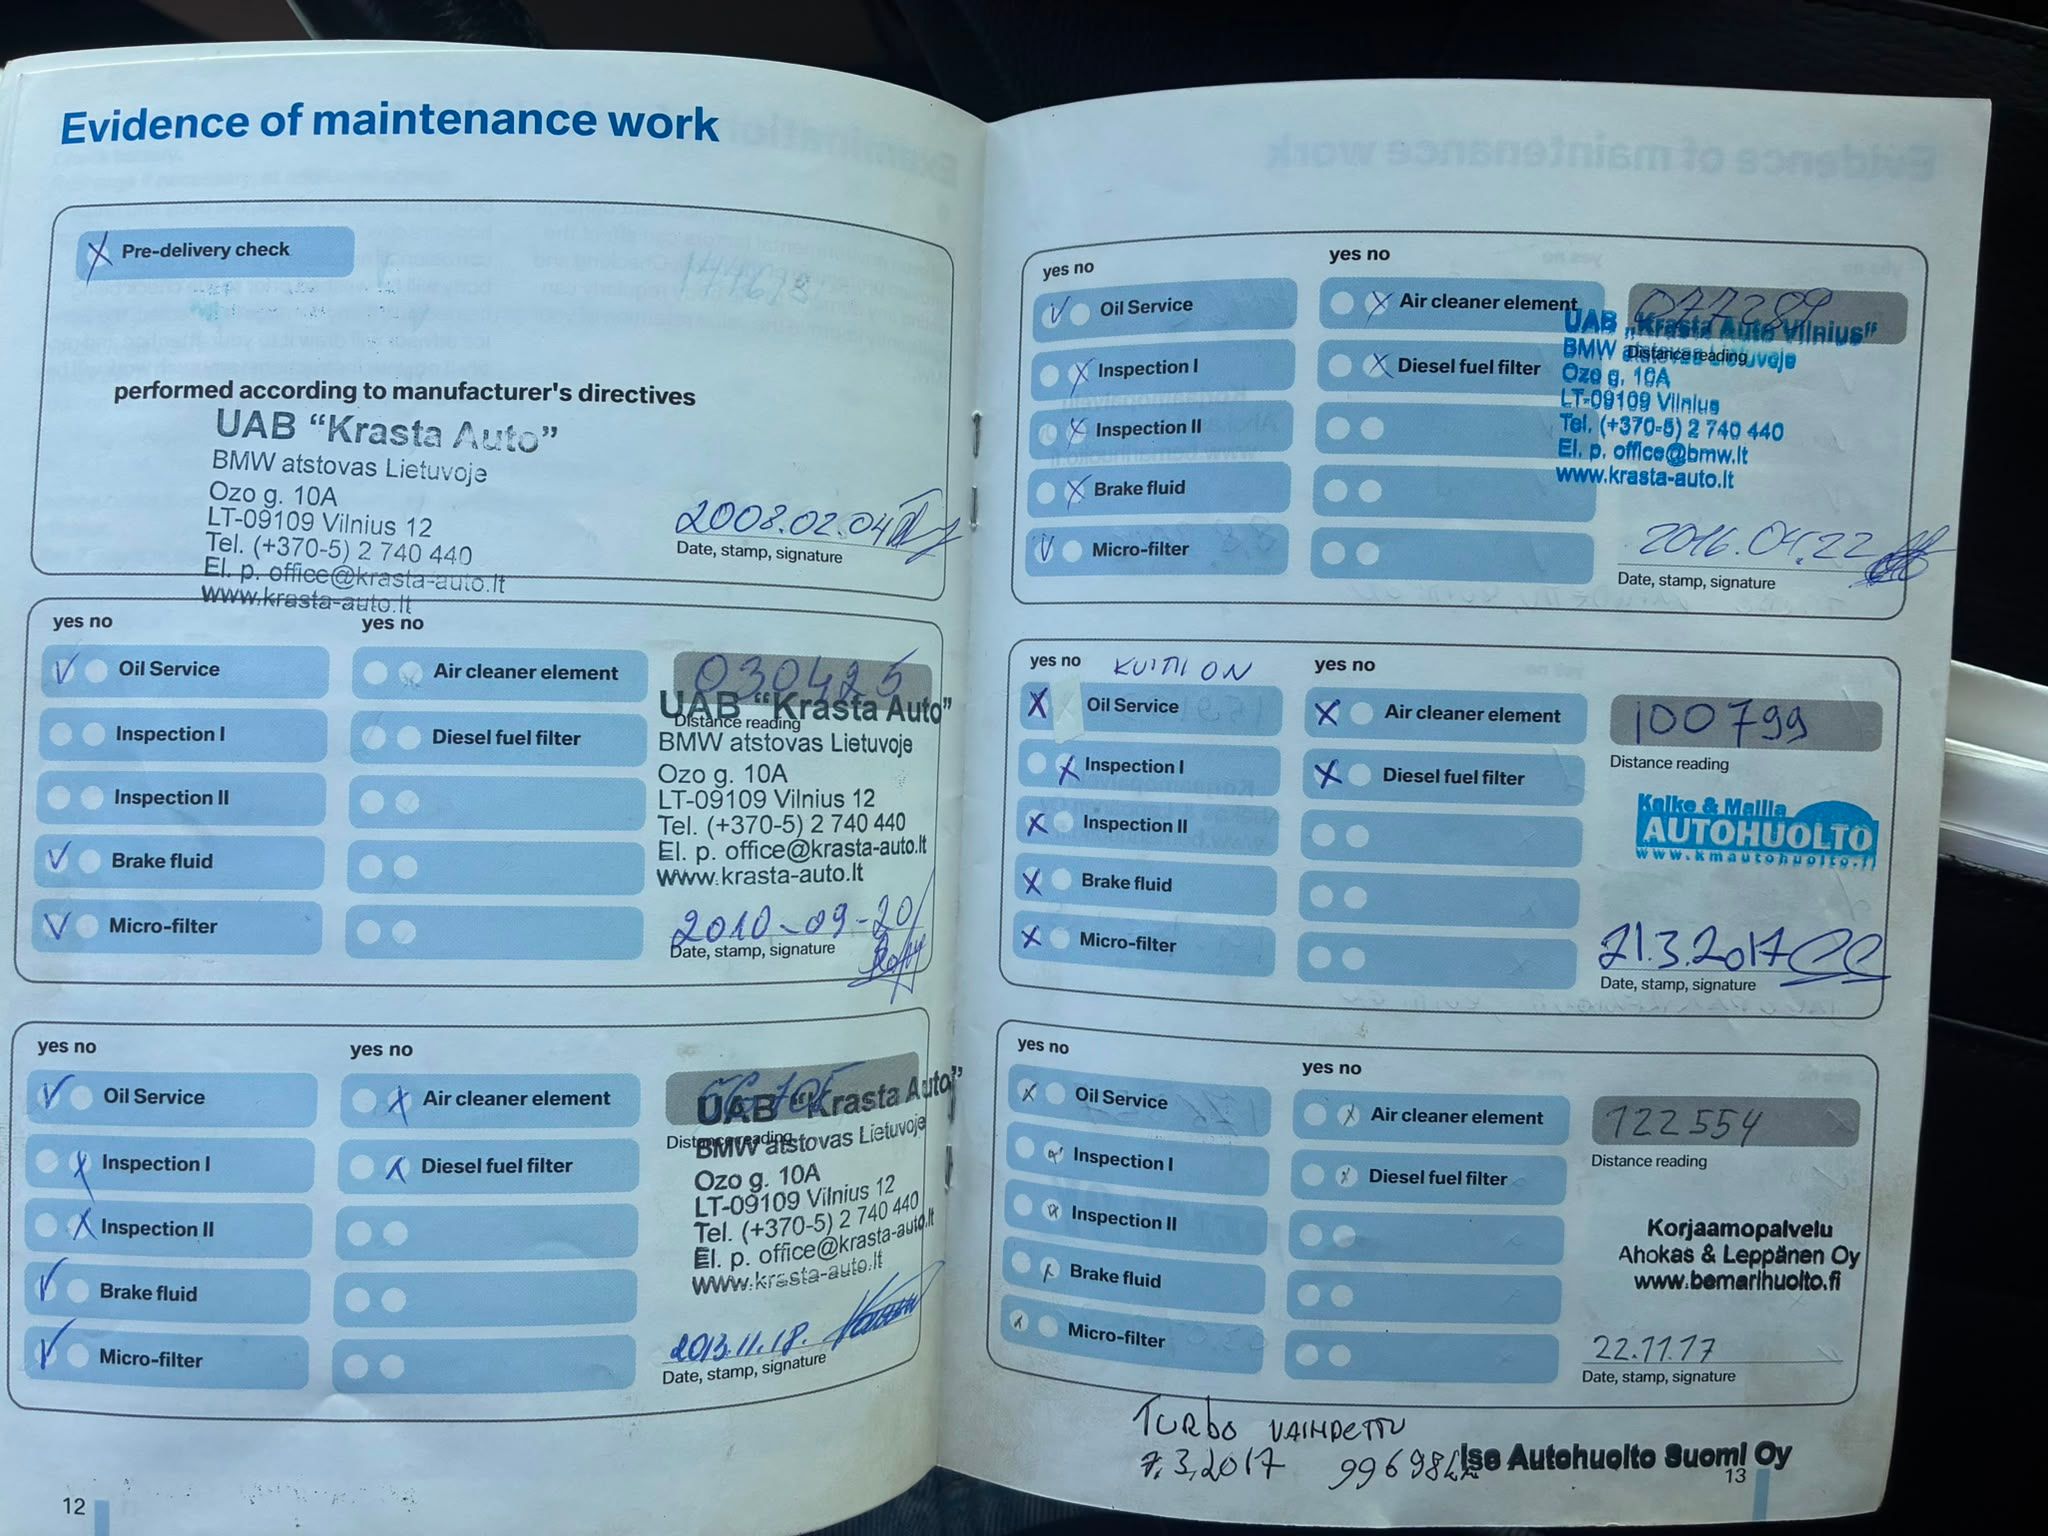 Evidence of maintenance work
Pre-delivery check
performed according to manufacturer's directives
UAB “Krasta Auto”
BMW atstovas Lietuvoje
Ozo g. 10A
LT-09109 Vilnius 12
Tel. (+370-5) 2 740 440
El. p. office@krasta-auto.lt
www.krasta-auto.lt
2008.02.04
Date, stamp, signature
yes no yes no
Oil Service Air cleaner element
030425
Distance reading
Inspection I Diesel fuel filter
Inspection II
Brake fluid
Micro-filter
UAB “Krasta Auto”
BMW atstovas Lietuvoje
Ozo g. 10A
LT-09109 Vilnius 12
Tel. (+370-5) 2 740 440
El. p. office@krasta-auto.lt
www.krasta-auto.lt
2010-09-20
Date, stamp, signature
yes no yes no
Oil Service Air cleaner element
Distance reading
Inspection I Diesel fuel filter
Inspection II
Brake fluid
Micro-filter
UAB “Krasta Auto”
BMW atstovas Lietuvoje
Ozo g. 10A
LT-09109 Vilnius 12
Tel. (+370-5) 2 740 440
El. p. office@krasta-auto.lt
www.krasta-auto.lt
2013.11.18.
Date, stamp, signature
12
yes no yes no
Oil Service Air cleaner element
077289
Distance reading
Inspection I Diesel fuel filter
Inspection II
Brake fluid
Micro-filter
UAB „Krasta Auto Vilnius“
BMW atstovas Lietuvoje
Ozo g. 10A
LT-09109 Vilnius
Tel. (+370-5) 2 740 440
El. p. office@bmw.lt
www.krasta-auto.lt
2016.04.22
Date, stamp, signature
yes no KUITTI ON yes no
Oil Service Air cleaner element
100799
Distance reading
Inspection I Diesel fuel filter
Inspection II
Brake fluid
Micro-filter
Kaike & Mallia
AUTOHUOLTO
www.kmautohuolto.fi
21.3.2017
Date, stamp, signature
yes no yes no
Oil Service Air cleaner element
122554
Distance reading
Inspection I Diesel fuel filter
Inspection II
Brake fluid
Micro-filter
Korjaamopalvelu
Ahokas & Leppänen Oy
www.bemarihuolto.fi
22.11.17
Date, stamp, signature
TURBO VAIHDETTU
7.3.2017 99698 Ise Autohuolto Suomi Oy
13